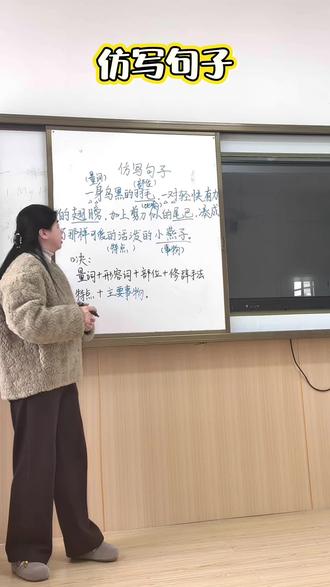 仿写句子
仿写句子
(量词) (部位)
一身乌黑的羽毛,一对轻快有力
的翅膀,加上剪刀似的尾巴,凑成
那样可爱的活泼的小燕子。
(特点) (事物)
口诀:
量词+形容词+部位+修辞手法
特点+主要事物。